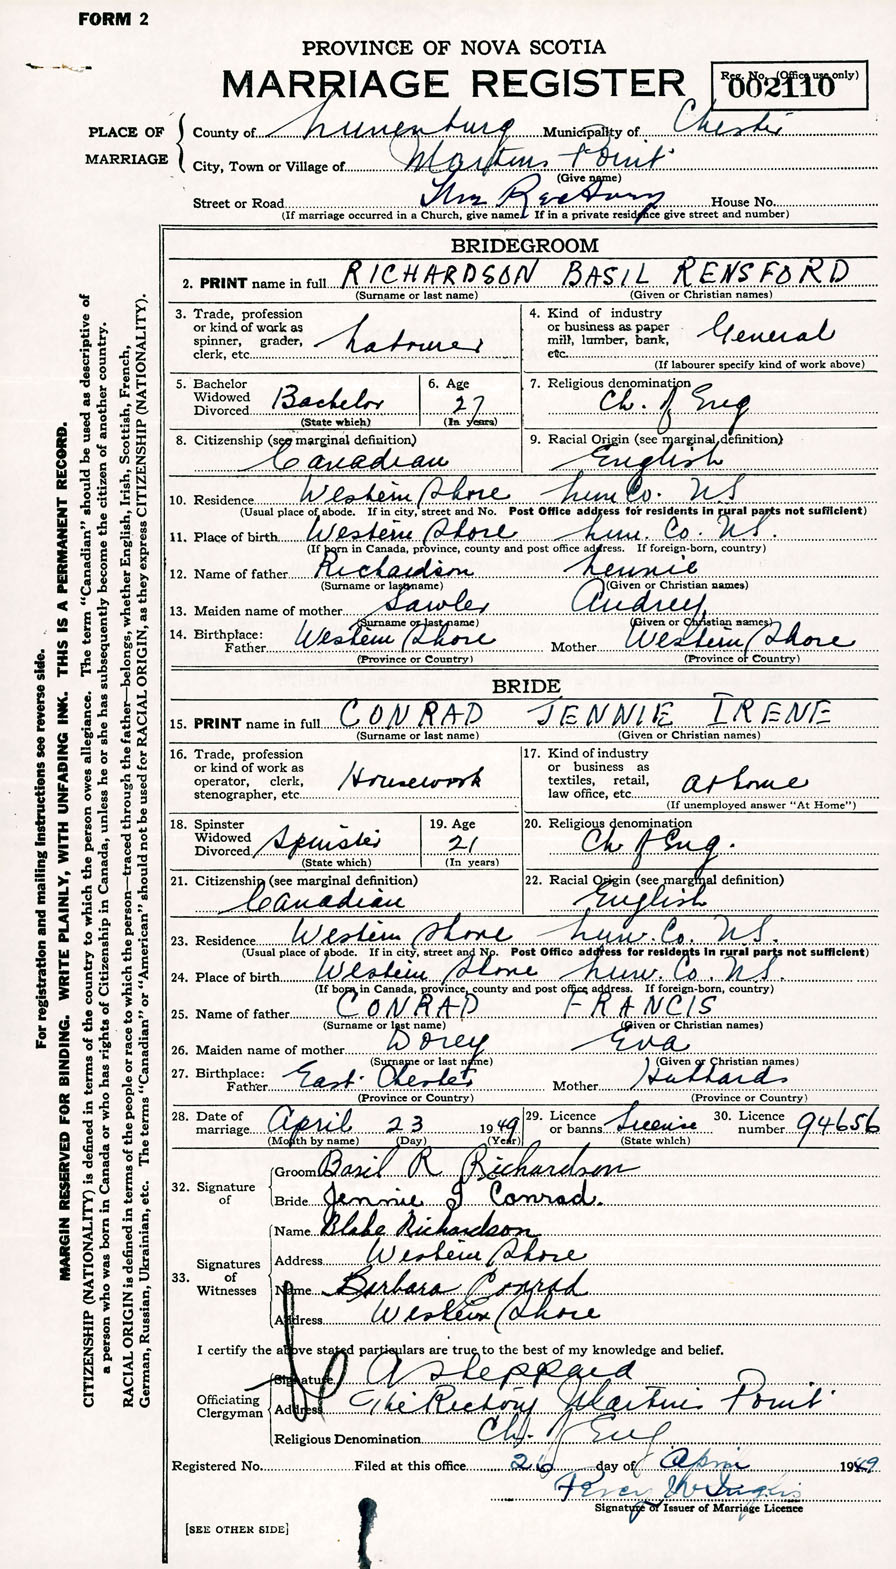 FORM 2
PROVINCE OF NOVA SCOTIA
MARRIAGE REGISTER
Reg. No. (Office use only)
002110
PLACE OF MARRIAGE
County of Lunenburg Municipality of Chester
City, Town or Village of Martins Point
(Give name)
Street or Road The Rectory House No.
(If marriage occurred in a Church, give name. If in a private residence give street and number)
BRIDEGROOM
2. PRINT name in full RICHARDSON BASIL RENSFORD
(Surname or last name) (Given or Christian names)
3. Trade, profession or kind of work as spinner, grader, clerk, etc. Labourer
4. Kind of industry or business as paper mill, lumber, bank, etc. General
(If labourer specify kind of work above)
5. Bachelor Widowed Divorced Bachelor
(State which)
6. Age 27
(In years)
7. Religious denomination Ch. of Eng
8. Citizenship (see marginal definition) Canadian
9. Racial Origin (see marginal definition) English
10. Residence Western Shore Lun Co. NS
(Usual place of abode. If in city, street and No. Post Office address for residents in rural parts not sufficient)
11. Place of birth Western Shore Lun. Co. N.S.
(If born in Canada, province, county and post office address. If foreign-born, country)
12. Name of father Richardson Lennie
(Surname or last name) (Given or Christian names)
13. Maiden name of mother Sawler Audrey
(Surname or last name) (Given or Christian names)
14. Birthplace: Father Western Shore Mother Western Shore
(Province or Country) (Province or Country)
BRIDE
15. PRINT name in full CONRAD JENNIE IRENE
(Surname or last name) (Given or Christian names)
16. Trade, profession or kind of work as operator, clerk, stenographer, etc. Housework
17. Kind of industry or business as textiles, retail, law office, etc. at home
(If unemployed answer "At Home")
18. Spinster Widowed Divorced Spinster
(State which)
19. Age 21
(In years)
20. Religious denomination Ch of Eng.
21. Citizenship (see marginal definition) Canadian
22. Racial Origin (see marginal definition) English
23. Residence Western Shore Lun. Co. N.S.
(Usual place of abode. If in city, street and No. Post Office address for residents in rural parts not sufficient)
24. Place of birth Western Shore Lun. Co. N.S.
(If born in Canada, province, county and post office address. If foreign-born, country)
25. Name of father CONRAD FRANCIS
(Surname or last name) (Given or Christian names)
26. Maiden name of mother Dorey Eva
(Surname or last name) (Given or Christian names)
27. Birthplace: Father East Chester Mother Hubbards
(Province or Country) (Province or Country)
28. Date of marriage April 23 1949
(Month by name) (Day) (Year)
29. Licence or banns License
(State which)
30. Licence number 94656
32. Signature of
Groom Basil R Richardson
Bride Jennie I Conrad.
33. Signatures of Witnesses
Name Blake Richardson
Address Western Shore
Name Barbara Conrad
Address Western Shore
I certify the above stated particulars are true to the best of my knowledge and belief.
Officiating Clergyman
Signature A Sheppard
Address The Rectory Martins Point
Religious Denomination Ch. of Eng
Registered No. Filed at this office 26 day of April 1949
Percy
Signature of Issuer of Marriage Licence
[SEE OTHER SIDE]
For registration and mailing instructions see reverse side.
MARGIN RESERVED FOR BINDING. WRITE PLAINLY, WITH UNFADING INK. THIS IS A PERMANENT RECORD.
CITIZENSHIP (NATIONALITY) is defined in terms of the country to which the person owes allegiance. The term "Canadian" should be used as descriptive of
a person who was born in Canada or who has rights of Citizenship in Canada, unless he or she has subsequently become the citizen of another country.
RACIAL ORIGIN is defined in terms of the people or race to which the person—traced through the father—belongs, whether English, Irish, Scottish, French,
German, Russian, Ukrainian, etc. The terms "Canadian" or "American" should not be used for RACIAL ORIGIN, as they express CITIZENSHIP (NATIONALITY).